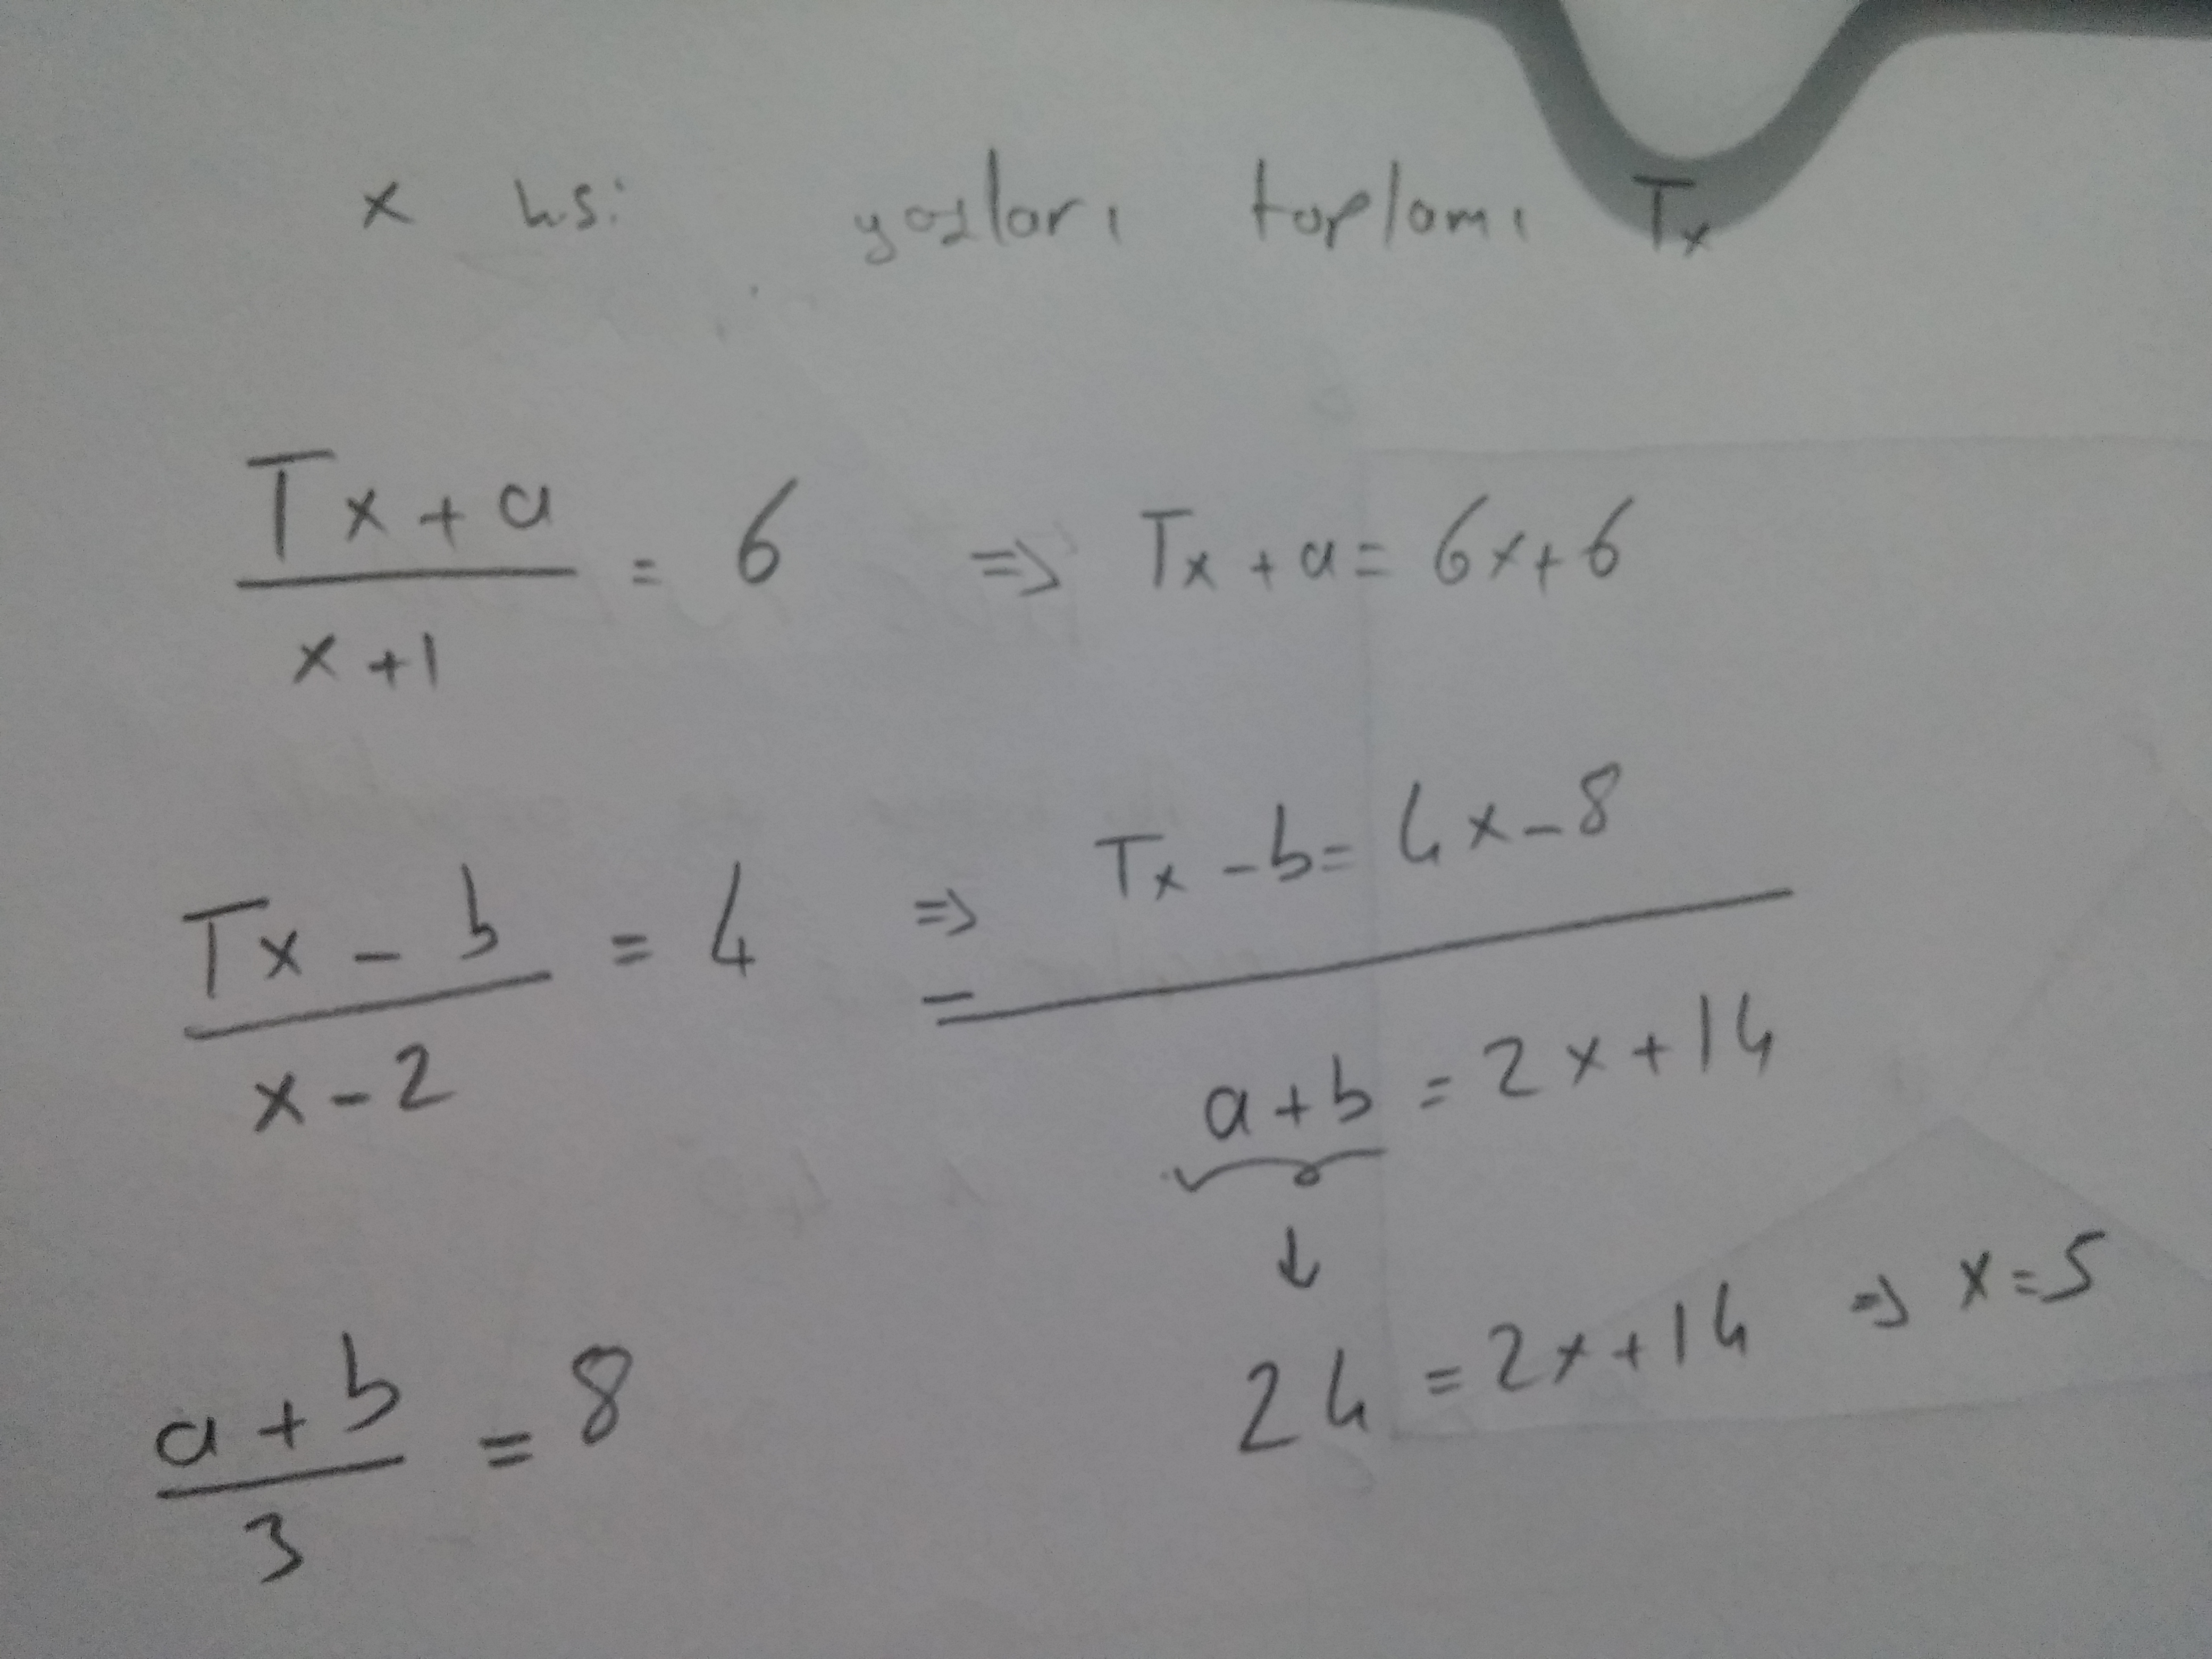 x kişi yaşları toplamı Tx
Tx + a / x + 1 = 6 => Tx + a = 6x + 6
Tx - b / x - 2 = 4 => Tx - b = 4x - 8
-
a + b = 2x + 14
↓
a + b / 3 = 8
24 = 2x + 14 => x = 5